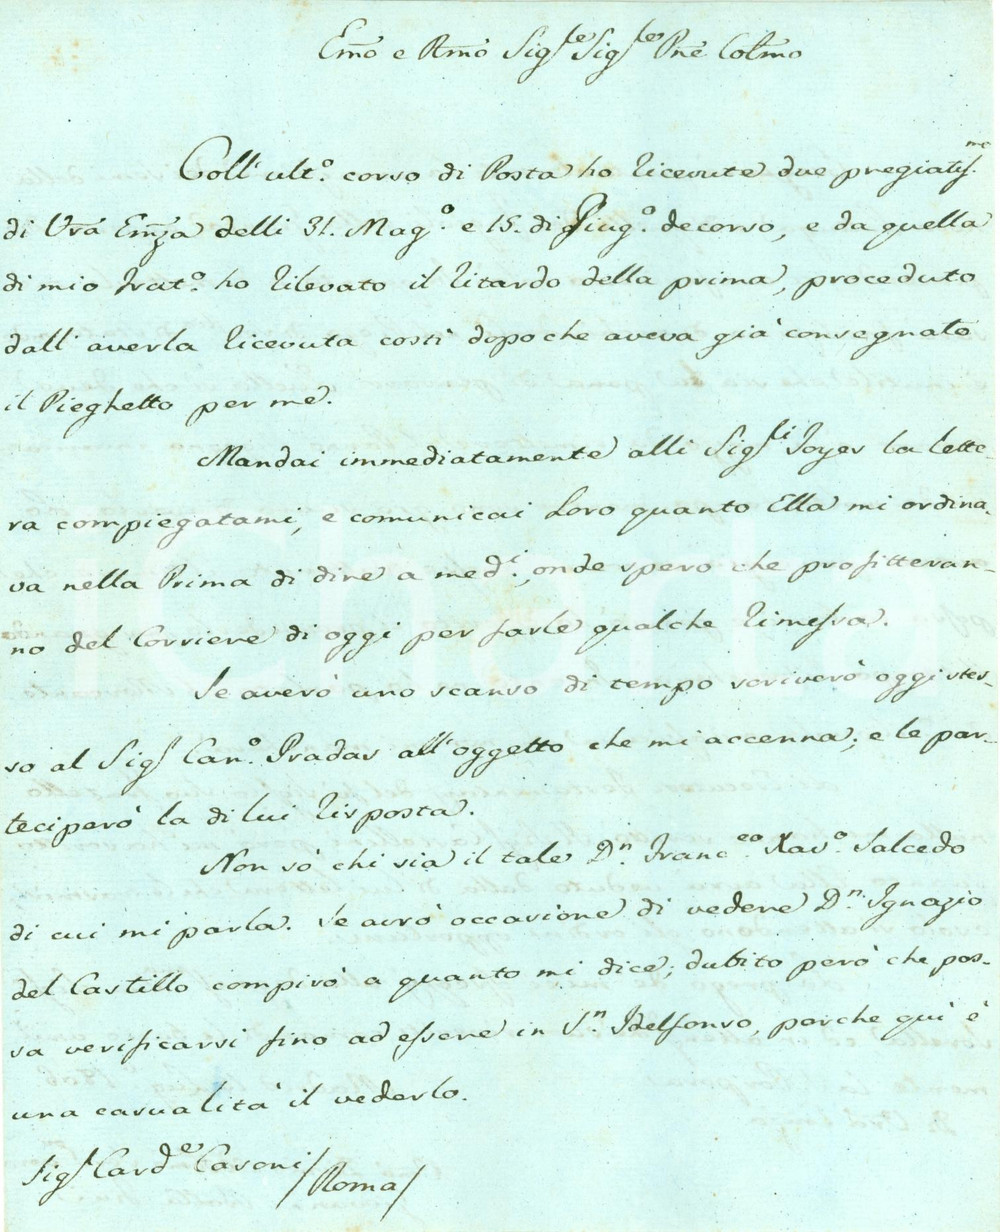 Emo e Rmo Sigre Sigre Pne Colmo
Coll' ulto. corso di Posta ho ricevute due pregiatisme.
di Vra Emza delli 31. Mago. e 15. di Giugo. decorso, e da quella
di mio Frato. ho rilevato il ritardo della prima, proceduto
dall' averla ricevuta costì dopo che aveva già consegnato
il Pieghetto per me.
Mandai immediatamente alli Sigri Joyes la lette-
ra compiegatami, e comunicai Loro quanto Ella mi ordina-
va nella Prima di dire a medi., onde spero che profitteran-
no del Corriere di oggi per farle qualche rimessa.
Se averò uno scanso di tempo scriverò oggi stes-
so al Sigr Cano. Pradas all'oggetto che mi accenna; e le par-
teciperò la di lui risposta.
Non sò chi sia il tale Dn. Franceo. Xavo. Salcedo
di cui mi parla. Se avrò occasione di vedere Dn. Ignazio
del Castillo compirò a quanto mi dice; dubito però che pos-
sa verificarsi fino ad essere in Sn. Idelfonso, perche quì è
una casualità il vederlo.
Sigr Carde Casoni / Roma /
iCharta